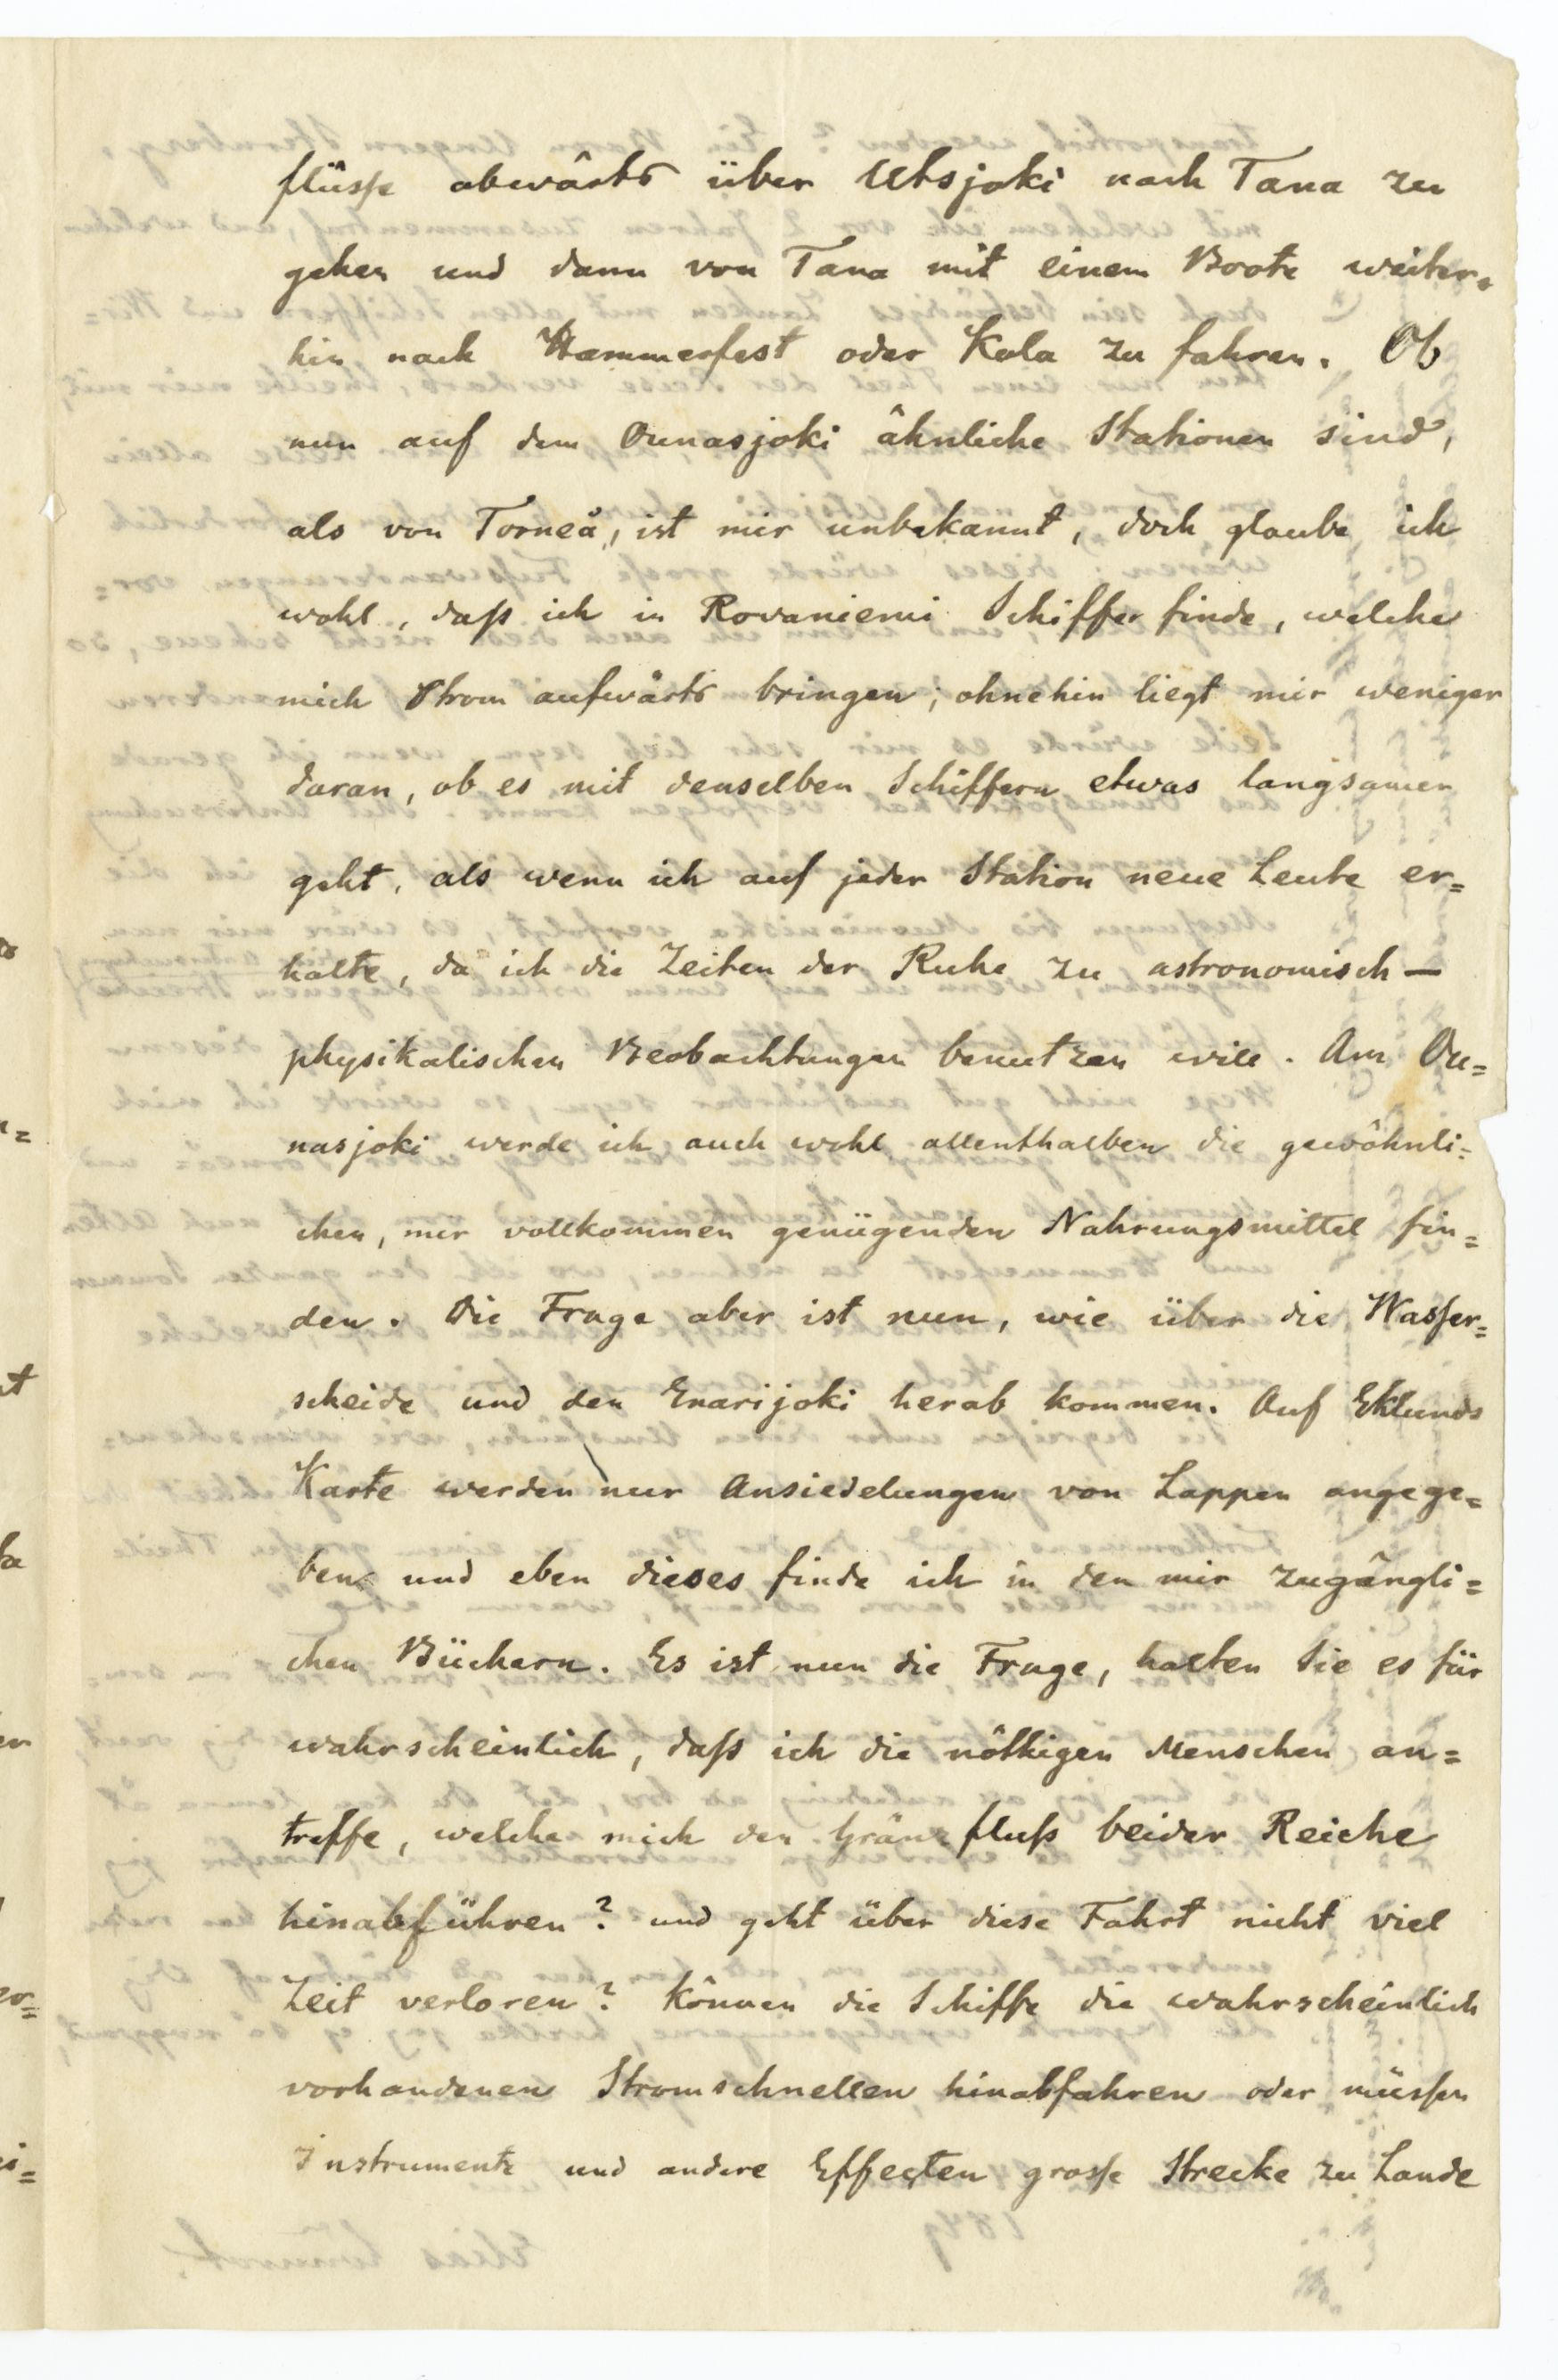 flüsse abwärts über Utsjoki nach Tana zu
gehen und dann von Tana mit einem Boote weiter-
hin nach Hammerfest oder Kola zu fahren. Ob
nun auf dem Ounasjoki ähnliche Stationen sind,
als von Torneå, ist mir unbekannt, doch glaube ich
wohl, daß ich in Rovaniemi Schiffer finde, welche
mich Strom aufwärts bringen; ohnehin liegt mir weniger
daran, ob es mit denselben Schiffern etwas langsamer
geht, als wenn ich auf jeder Station neue Leute er=
halte, da ich die Zeiten der Ruhe zu astronomisch —
physikalischen Beobachtungen benutzen will. Am Ou=
nasjoki werde ich auch wohl allenthalben die gewöhnli=
chen, mir vollkommen genügenden Nahrungsmittel fin=
den. Die Frage aber ist nun, wie über die Wasser=
scheide und den Enarijoki herab kommen. Auf Eklunds
Karte werden nur Ansiedelungen von Lappen angege=
ben und eben dieses finde ich in den mir zugängli=
chen Büchern. Es ist nun die Frage, halten Sie es für
wahrscheinlich, daß ich die nöthigen Menschen an=
treffe, welche mich den Gränzfluß beider Reiche
hinabführen? und geht über diese Fahrt nicht viel
Zeit verloren? Können die Schiffe die wahrscheinlich
vorhandenen Stromschnellen hinabfahren oder müssen
Instrumente und andere Effecten grosse Strecke zu Lande